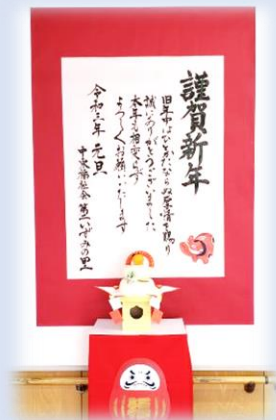 謹賀新年
旧年中はひとかたならぬ厚情を賜り
誠にありがとうございました
本年も相変らず
よろしくお願いいたします
令和三年 元旦
中央福祉会 第二いずみの里